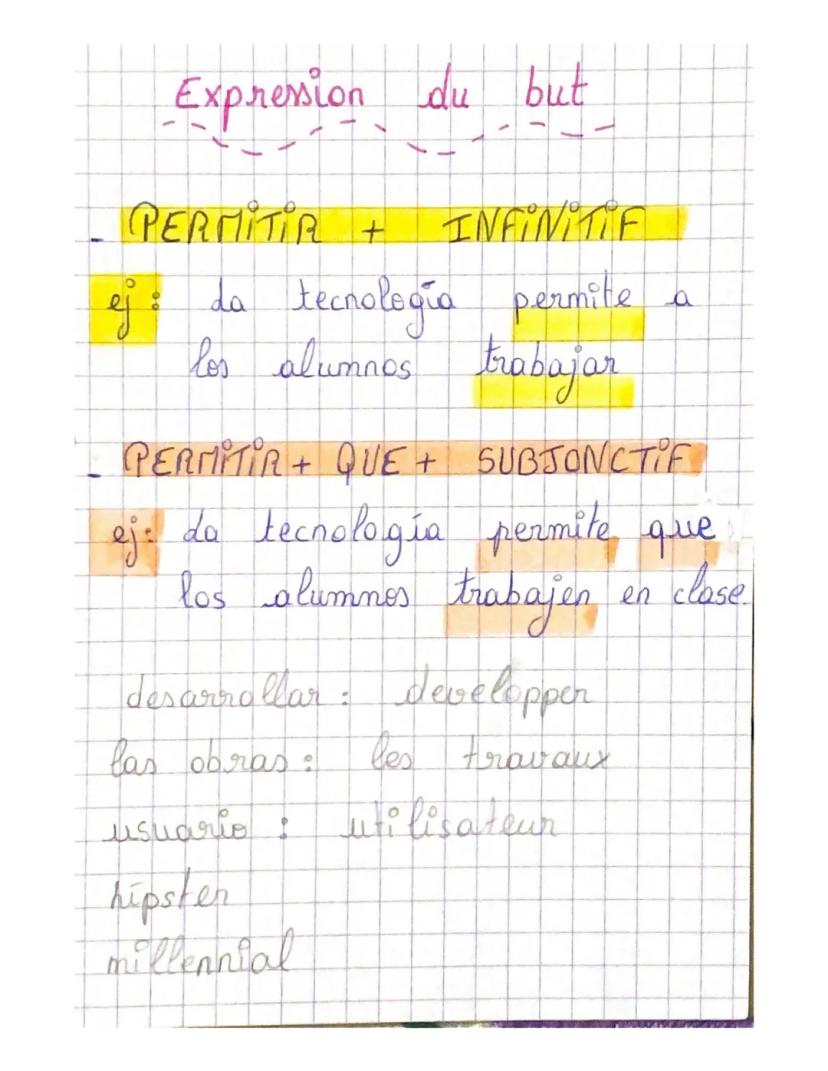 Expression du but
- PERMITIR + INFINITIF
ej: La tecnología permite a
los alumnos trabajar
- PERMITIR + QUE + SUBJONCTIF
ej: La tecnología permite que
los alumnos trabajen en clase
desarrollar : developper
las obras : les travaux
usuario : utilisateur
hipster
millennial